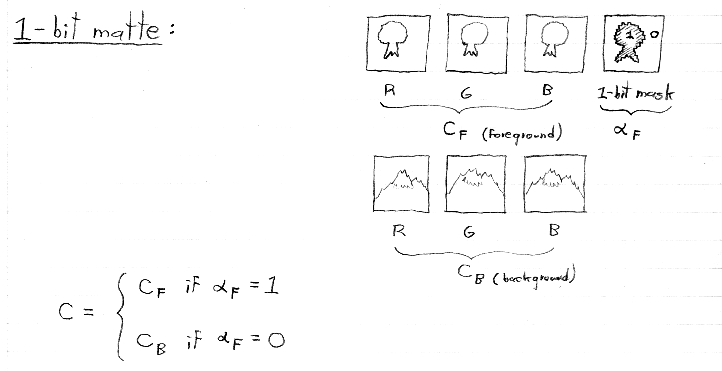 1-bit matte:
1 0
R G B 1-bit mask
C_F (foreground) α_F
R G B
C_B (background)
C = { C_F if α_F = 1
C_B if α_F = 0